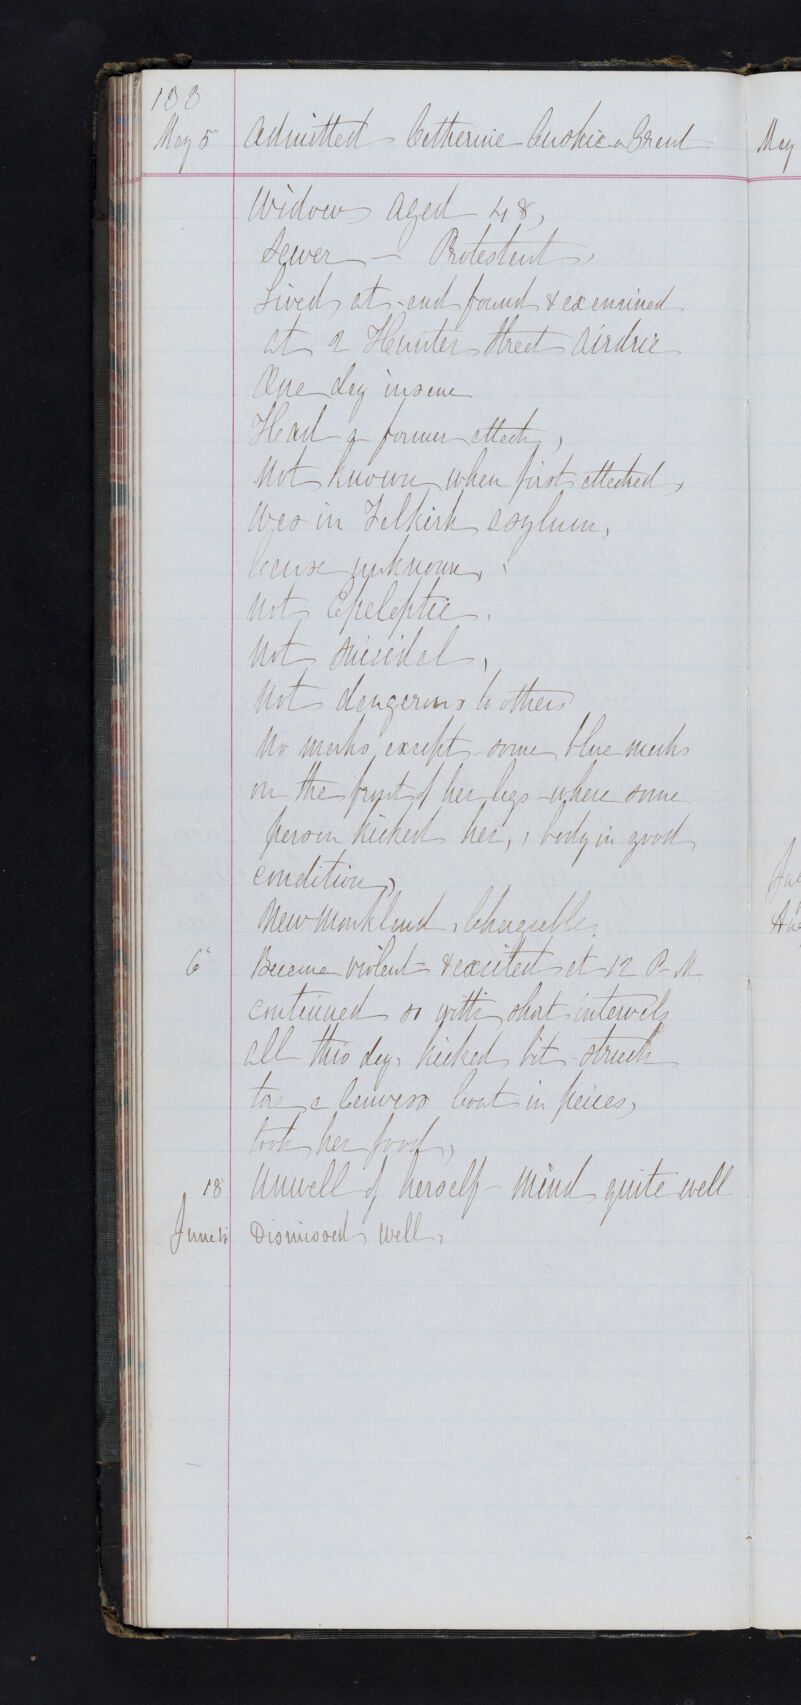 133
May 5 Admitted Catherine Cuskie or Grant
May
Widow aged 48,
Sewer - Protestant,
Lived at and found & examined
at 2 Hunter Street Airdrie
One day insane
Had a former attack,
Not known when first attacked,
Was in Selkirk asylum,
Cause unknown,
Not Epeleptic,
Not suicidal,
Not dangerous to others
No marks, except some blue marks
on the front of her legs where some
person kicked her, body in good
condition,
New Monkland, Chargeable.
6 Became violent & excited at 12 P.M
continued so with short intervals
all this day, kicked bit struck
tore a Canvass Coat in peices,
took her food,
18 Unwell of herself - Mind quite well
June Dismissed, well,